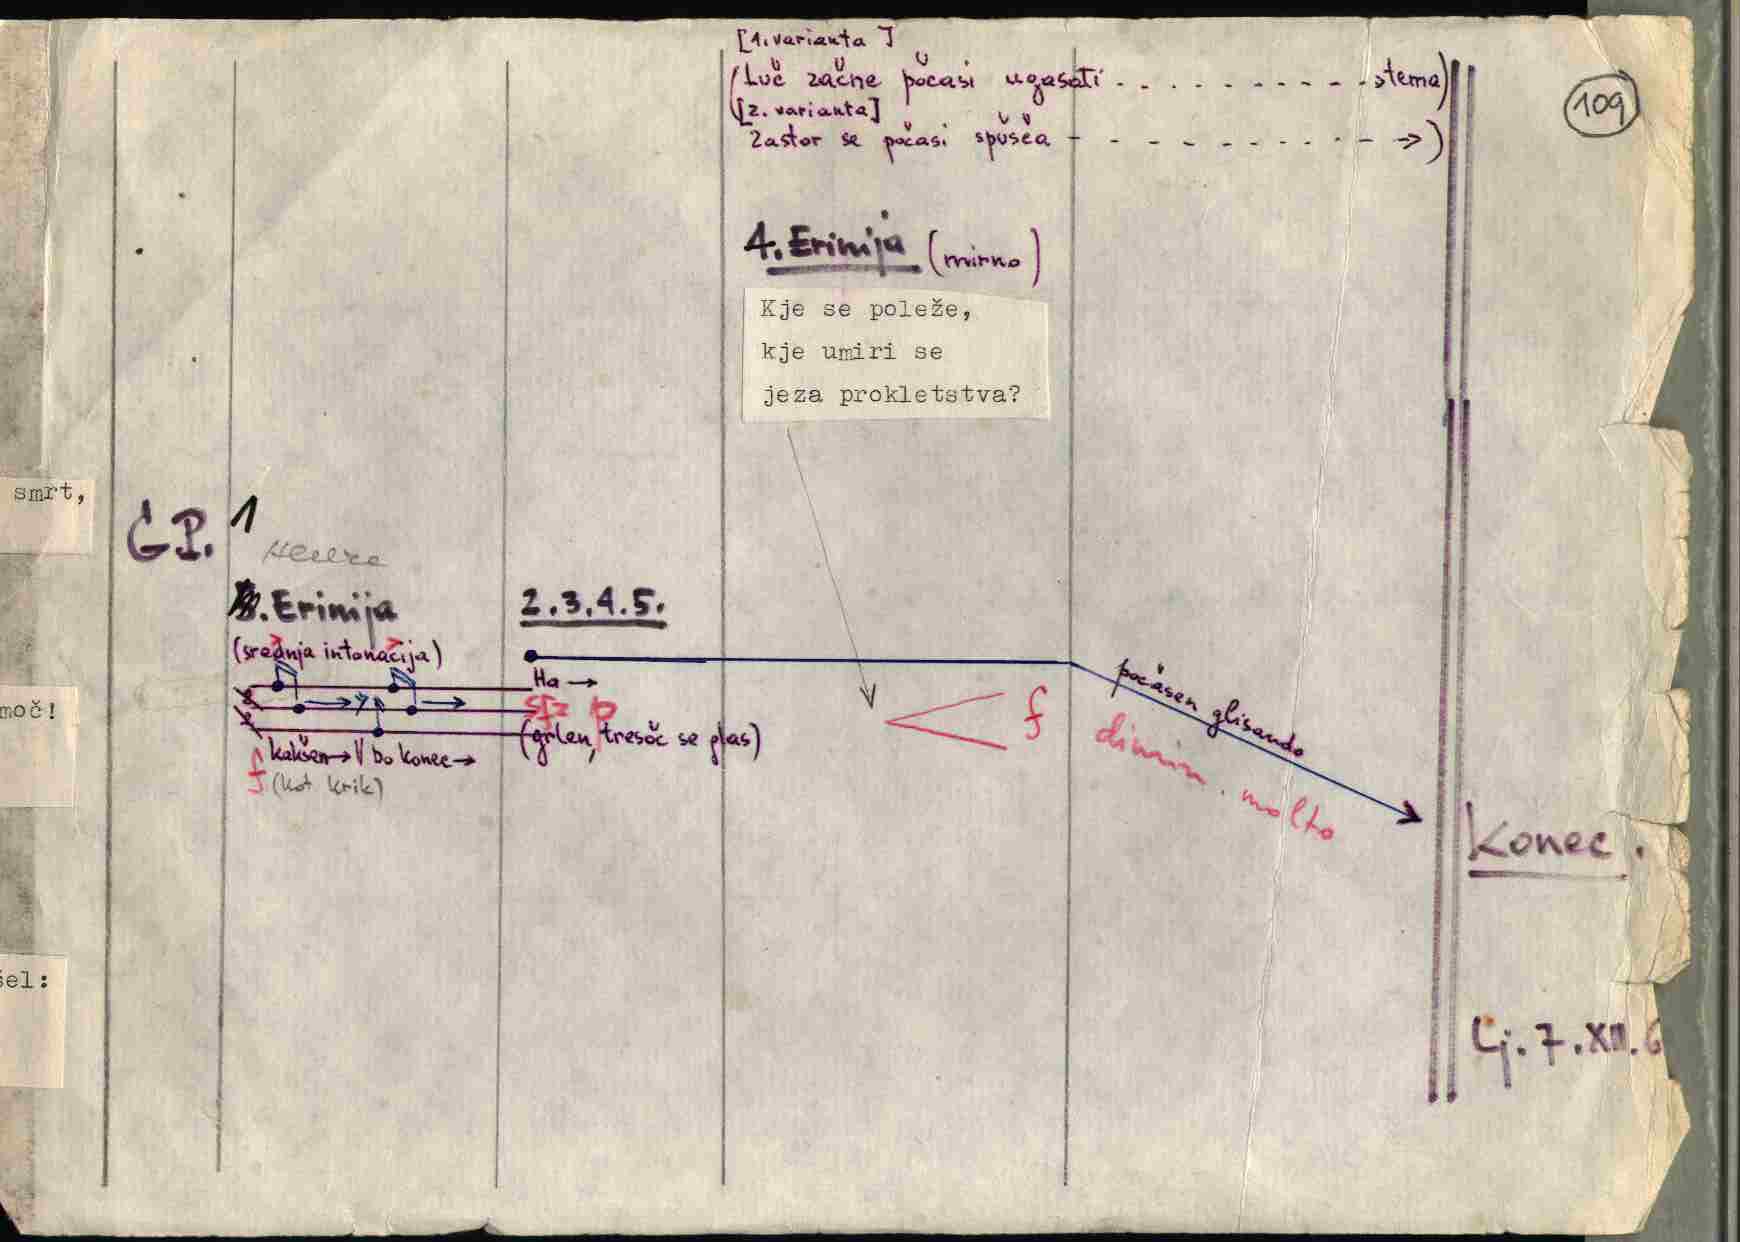 [1. varianta]
(Luč začne počasi ugašati - - - - - - - - - - → tema)
[2. varianta]
Zastor se počasi spušča - - - - - - - - - - →)
109
4. Erinija (mirno)
Kje se poleže,
kje umiri se
jeza prokletstva?
smrt,
G.P.
1
. Erinija
2.3.4.5.
(srednja intonacija)
Ha →
sfz p
(grlen, tresoč se glas)
kakšen → V bo konec →
f (kot krik)
f
počasen glisando
dimin. molto
moč!
Konec.
šel:
Lj. 7. XII. 6